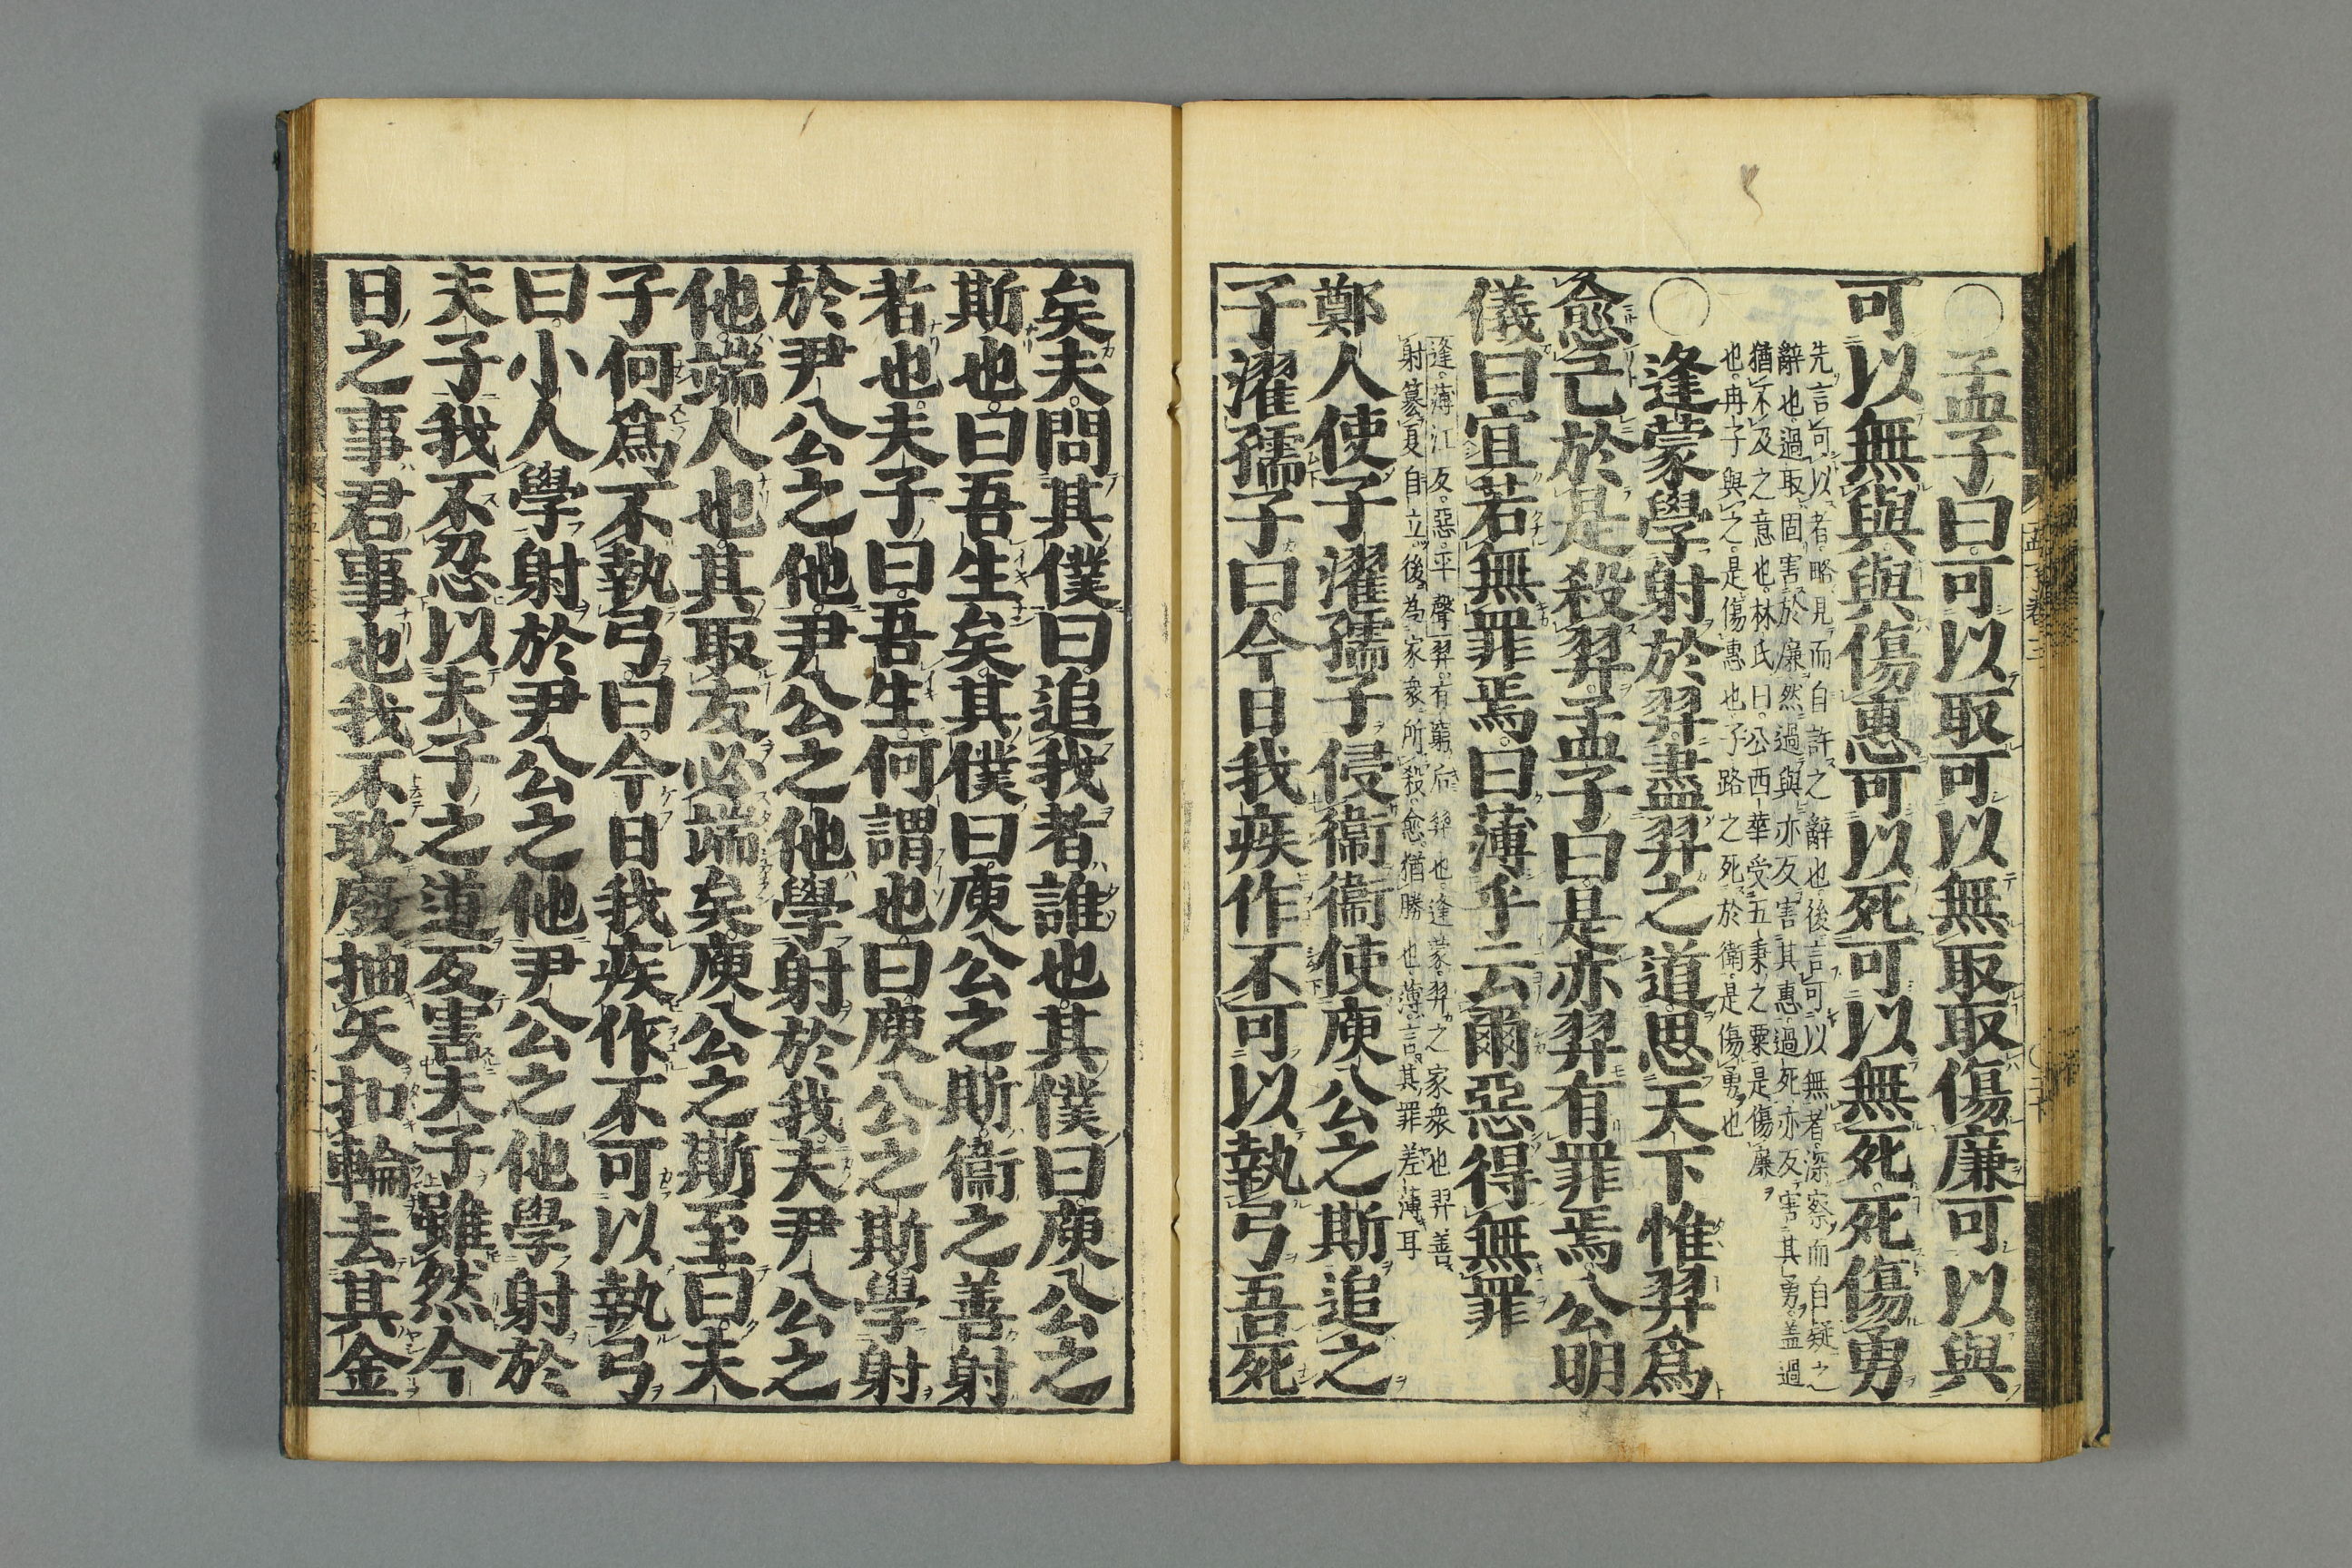 ○孟子曰可以取可以無取取傷廉可以與
可以無與與傷惠可以死可以無死死傷勇
先言可以者略見而自許之辭也後言可以無者深察而自疑之
辭也過取固害於廉然過與亦反害其惠過死亦反害其勇蓋過
猶不及之意也林氏曰公西華受五秉之粟是傷廉
也冉子與之是傷惠也子路之死於衛是傷勇也
○逢蒙學射於羿盡羿之道思天下惟羿爲
愈己於是殺羿孟子曰是亦羿有罪焉公明
儀曰宜若無罪焉曰薄乎云爾惡得無罪
逢薄江反惡平聲羿有窮后羿也逢蒙羿之家衆也羿善
射簒夏自立後為家衆所殺愈猶勝也薄言其罪差薄耳
鄭人使子濯孺子侵衞衞使庾公之斯追之
子濯孺子曰今日我疾作不可以執弓吾死
矣夫問其僕曰追我者誰也其僕曰庾公之
斯也曰吾生矣其僕曰庾公之斯衞之善射
者也夫子曰吾生何謂也曰庾公之斯學射
於尹公之他尹公之他學射於我夫尹公之
他端人也其取友必端矣庾公之斯至曰夫
子何爲不執弓曰今日我疾作不可以執弓
曰小人學射於尹公之他尹公之他學射於
夫子我不忍以夫子之道反害夫子雖然今
日之事君事也我不敢廢抽矢扣輪去其金